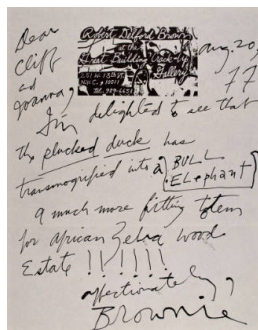 Dear
Cliff
and
Joanna,
Robert Delford Brown
at the
Great Building Crack-Up
Gallery
251 W. 13th St.
N.Y.C. 10011
Tel. 929-
Aug. 20,
77
I'm delighted to see that
the plucked duck has
transmogrified into a BULL
ELephant
a much more fitting totem
for African Zebra Wood
Estate !!!!!!
affectionately,
Brownie